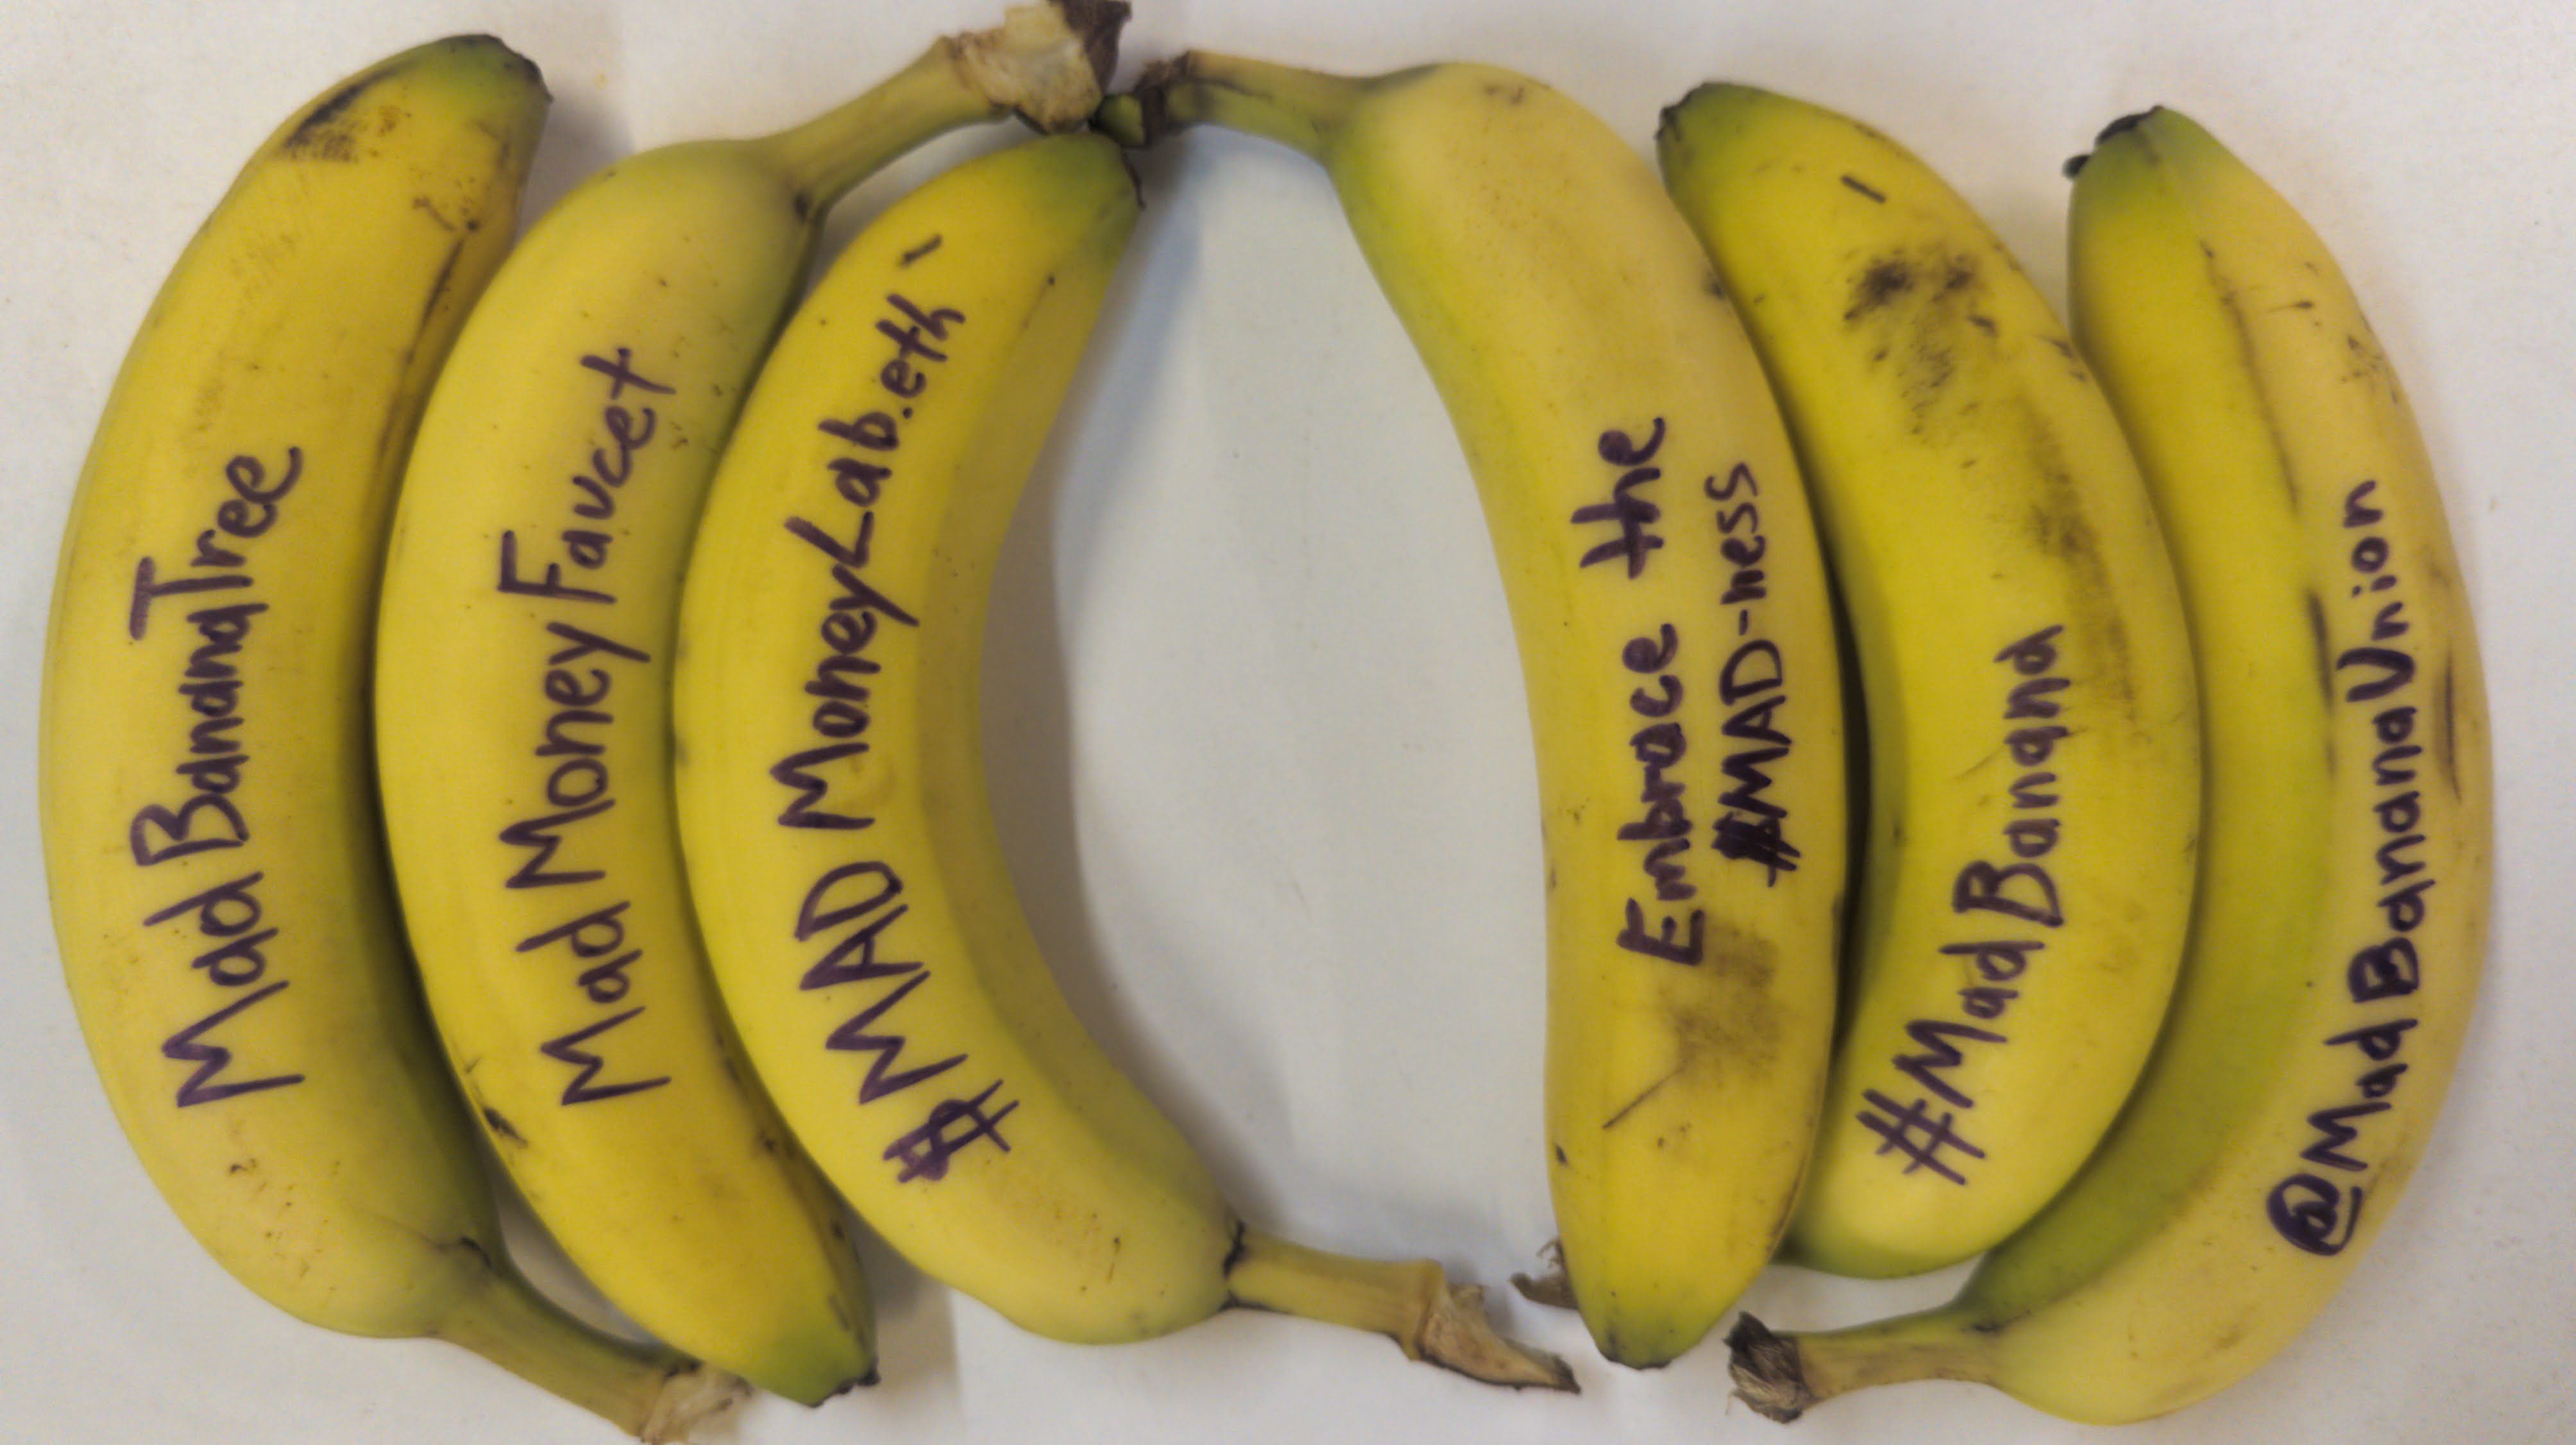 Mad BananaTree
Mad Money Faucet
$MAD MoneyLab.eth
Embrace the
$MAD-ness
#MadBanana
@MadBananaUnion